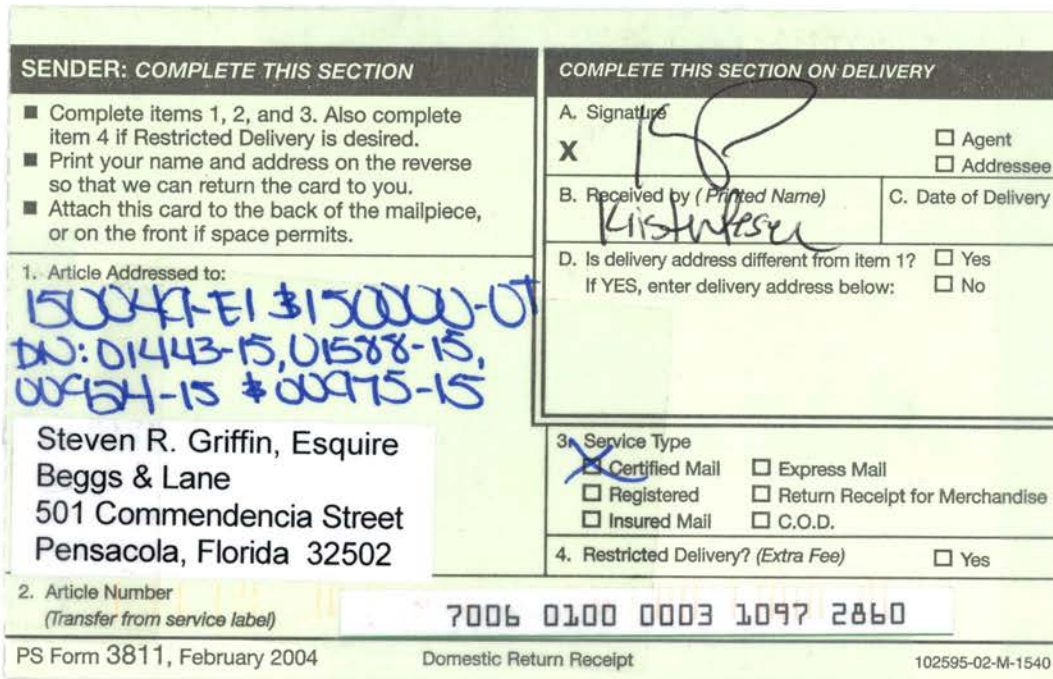 SENDER: COMPLETE THIS SECTION
■ Complete items 1, 2, and 3. Also complete
item 4 if Restricted Delivery is desired.
■ Print your name and address on the reverse
so that we can return the card to you.
■ Attach this card to the back of the mailpiece,
or on the front if space permits.
1. Article Addressed to:
150049-EI & 150000-OT
DN: 01443-15, 01588-15,
00924-15 & 00975-15
Steven R. Griffin, Esquire
Beggs & Lane
501 Commendencia Street
Pensacola, Florida 32502
2. Article Number
(Transfer from service label)
7006 0100 0003 1097 2860
COMPLETE THIS SECTION ON DELIVERY
A. Signature
X
☐ Agent
☐ Addressee
B. Received by (Printed Name)
C. Date of Delivery
D. Is delivery address different from item 1? ☐ Yes
If YES, enter delivery address below: ☐ No
3. Service Type
☒ Certified Mail ☐ Express Mail
☐ Registered ☐ Return Receipt for Merchandise
☐ Insured Mail ☐ C.O.D.
4. Restricted Delivery? (Extra Fee) ☐ Yes
PS Form 3811, February 2004
Domestic Return Receipt
102595-02-M-1540